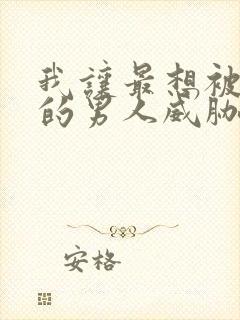 我讓最想被
的男人威胁
安格